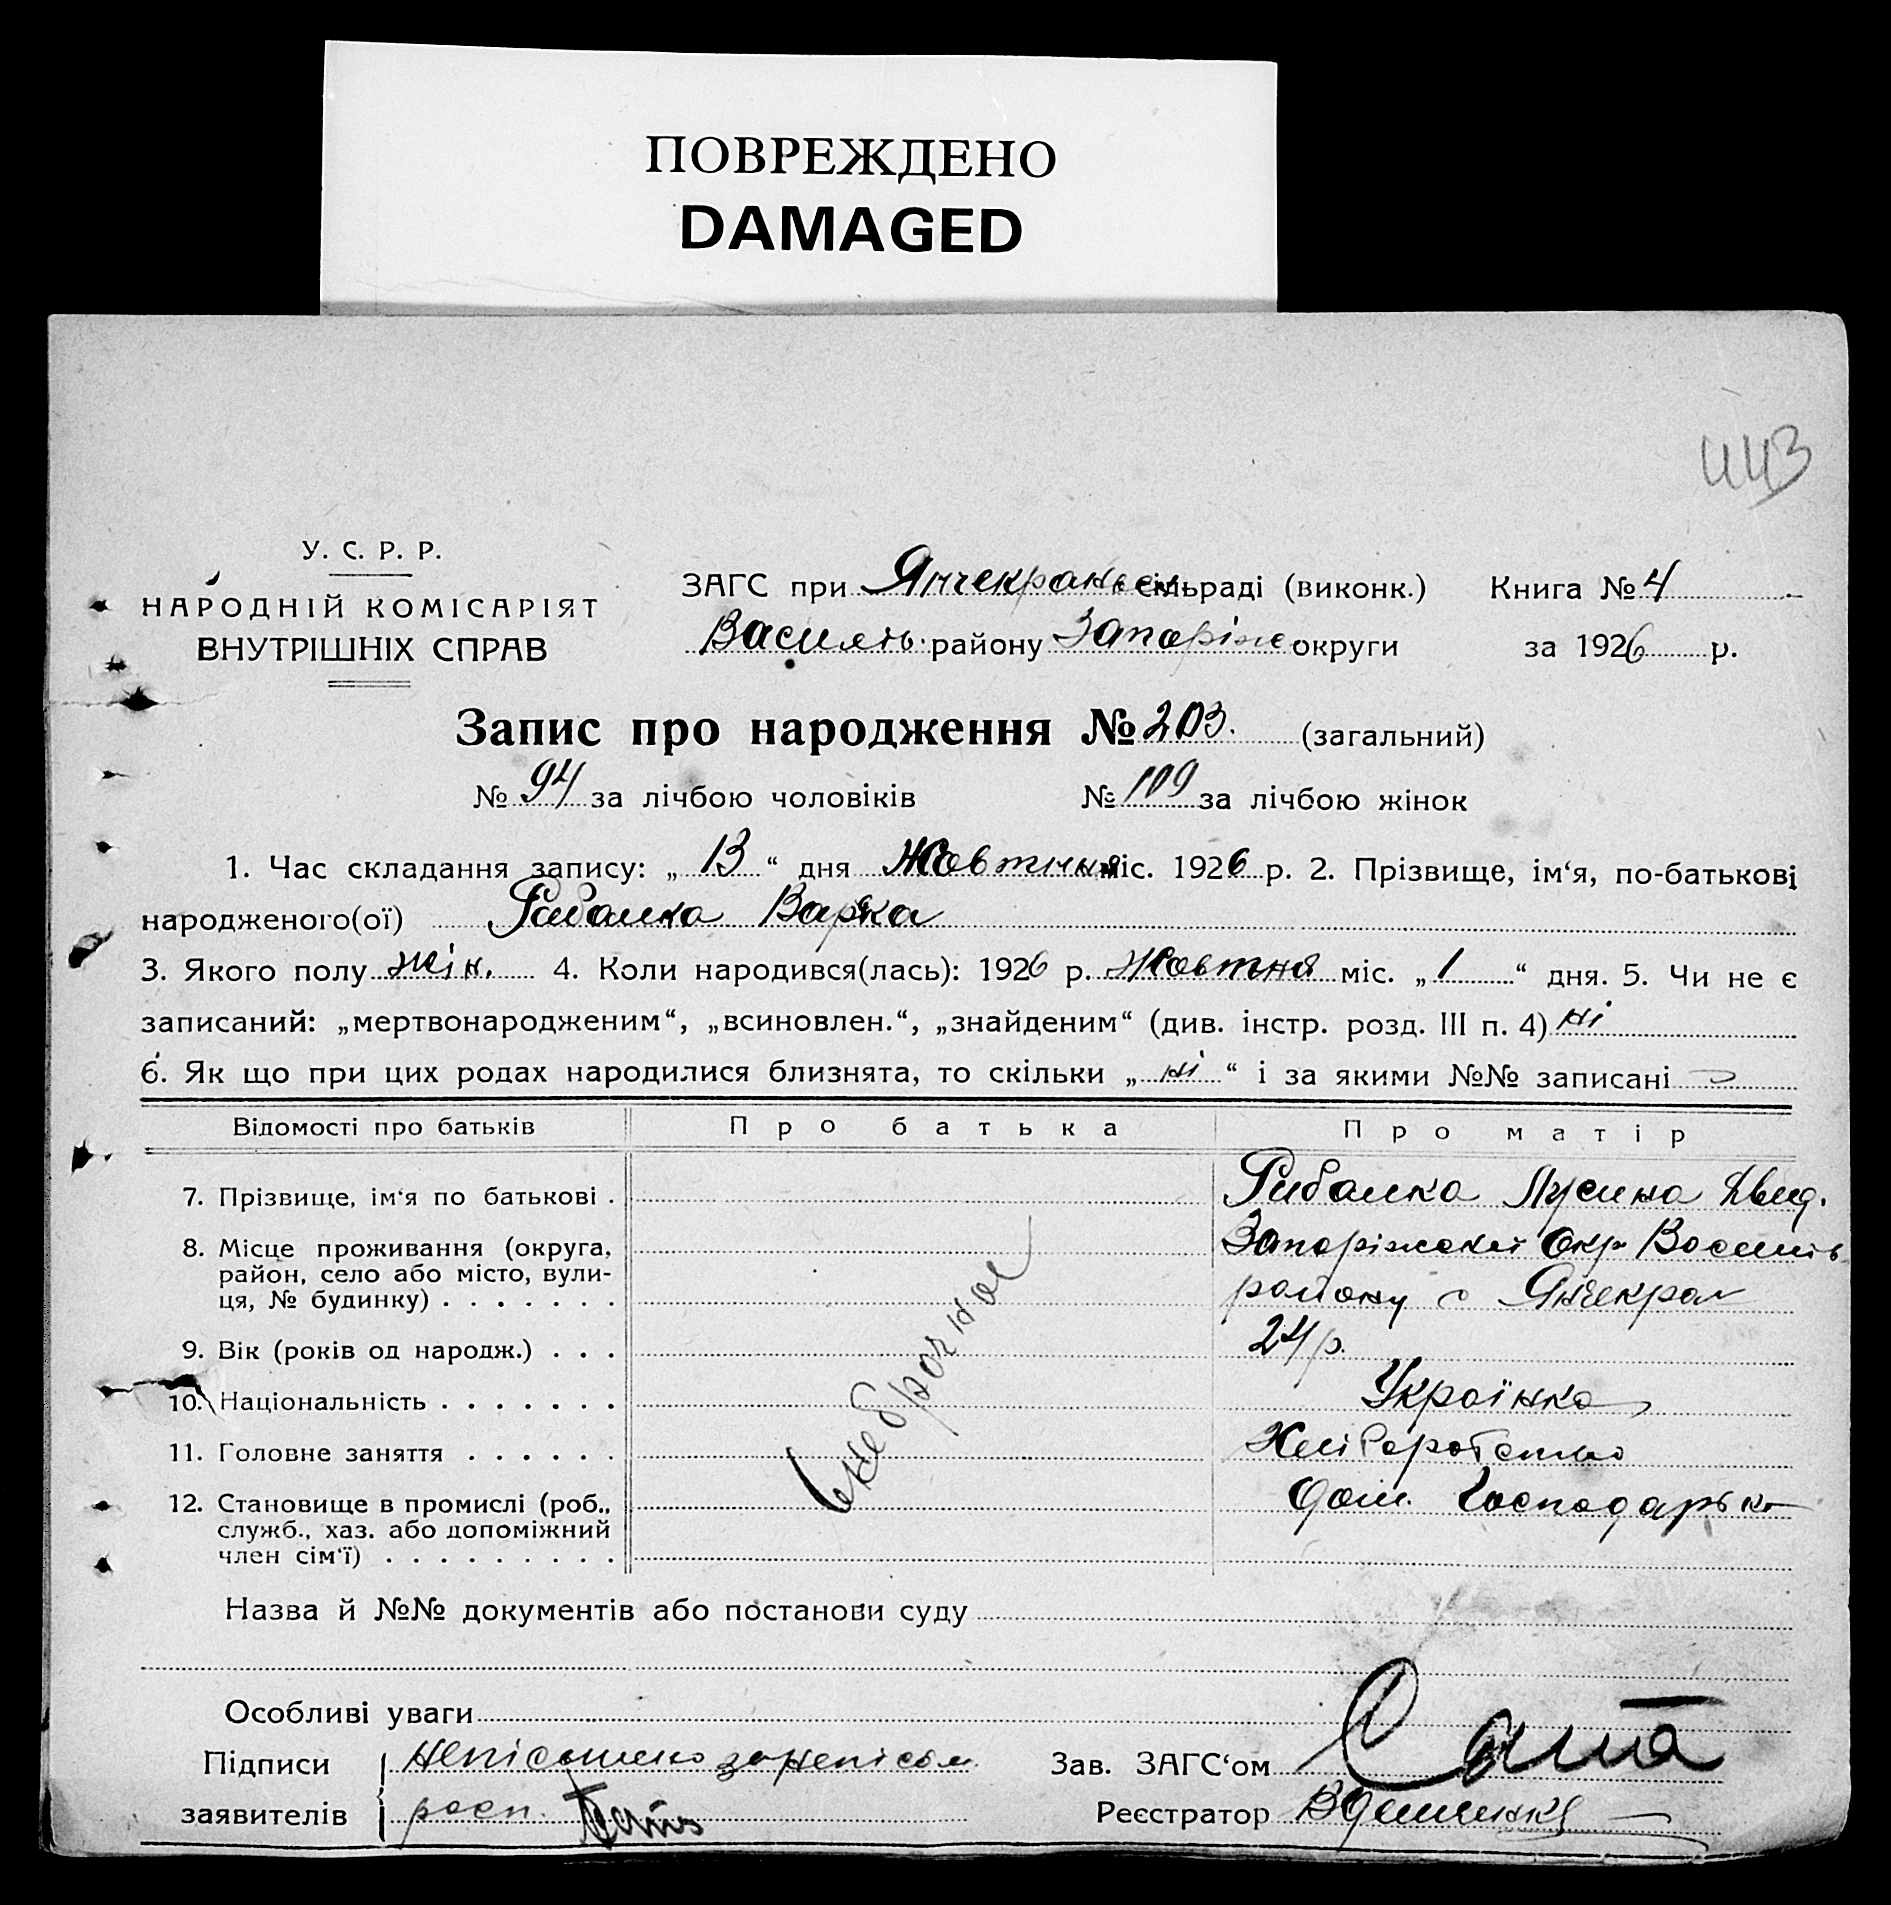 ПОВРЕЖДЕНО
DAMAGED
443
У. С. Р. Р.
НАРОДНІЙ КОМІСАРІЯТ
ВНУТРІШНІХ СПРАВ
ЗАГС при Янчекраньск. сільраді (виконк.) Книга № 4
Василів. району Запоріж округи за 1926 р.
Запис про народження № 203. (загальний)
№ 94 за лічбою чоловіків № 109 за лічбою жінок
1. Час складання запису: „ 13 “ дня Жовтня міс. 1926 р. 2. Прізвище, ім‘я, по-батькові
народженого(ої) Рибалка Варка
3. Якого полу жін. 4. Коли народився(лась): 1926 р. Жовтня міс. „ 1 “ дня. 5. Чи не є
записаний: „мертвонародженим“, „всиновлен.“, „знайденим“ (див. інстр. розд. III п. 4) ні
6. Як що при цих родах народилися близнята, то скільки „ ні “ і за якими №№ записані
Відомості про батьків Про батька Про матір
7. Прізвище, ім‘я по батькові . Рибалка
8. Місце проживання (округа, Запоріжської Окр Василів
район, село або місто, вули- району с Янчекрак
ця, № будинку) . . . . . . .
9. Вік (років од народж.) . . . 24 р.
10. Національність . . . . . . . Українка
11. Головне заняття . . . . . . Хліборобство
12. Становище в промислі (роб., дом. Господарька
служб., хаз. або допоміжний
член сім‘ї) . . . . . . . . .
внебрачное
Назва й №№ документів або постанови суду
Особливі уваги
Підписи Зав. ЗАГС‘ом
заявителів росп. Реєстратор